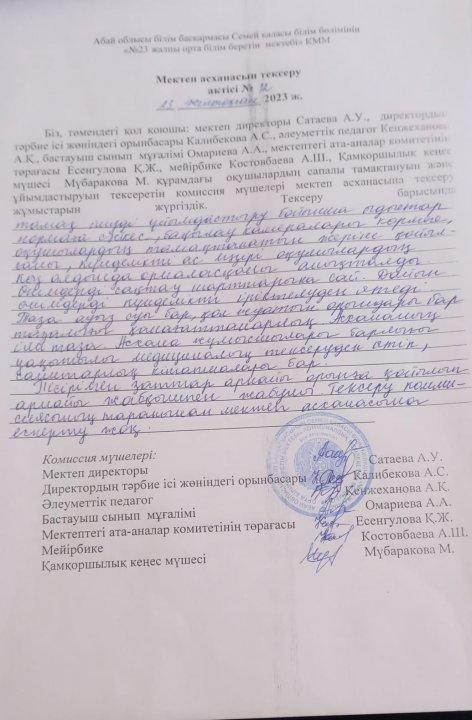 Абай облысы білім басқармасы Семей қаласы білім бөлімінің
«№23 жалпы орта білім беретін мектебі» КММ
Мектеп асханасын тексеру
актісі № 12
23 желтоқсан 2023 ж.
Біз, төмендегі қол қоюшы: мектеп директоры Сатаева А.У., директордың
тәрбие ісі жөніндегі орынбасары Калибекова А.С., әлеуметтік педагог Кенжеханова
А.Қ., бастауыш сынып мұғалімі Омариева А.А., мектептегі ата-аналар комитетінің
төрағасы Есенгулова Қ.Ж., мейірбике Костовбаева А.Ш., Қамқоршылық кеңес
мүшесі Мүбаракова М. құрамдағы оқушылардың сапалы тамақтануын және
ұйымдастыруын тексеретін комиссия мүшелері мектеп асханасына тексеру
жұмыстарын жүргіздік. Тексеру барысында
тамақ ішуді ұйымдастыру бойынша ыдыстар
нормаға сәйкес, бақылау камералары көрнекі,
оқушылардың тамақтанатын жеріне қойыл-
ғаны, күнделікті ас мәзірі оқушылардың
көз алдында орналасқаны анықталды.
өнімдерді сақтау шарттарына сай. Дайын
өнімдерді күнделікті іріктелуден өтеді.
Таза ауыз суы бар, қол жуатын орындары бар
тазалығы қанағаттанарлық. Асхананың
іші таза. Асхана жұмысшылары барлығы
уақытылы медициналық тексеруден өтіп,
санитарлық кітапшалары бар.
Жуғыш заттар арнайы орынға қойылып
арнайы жабқышпен жабулы. Тексеру комис-
сиясының тарапынан мектеп асханасына
ескерту жоқ.
Комиссия мүшелері:
Мектеп директоры Сатаева А.У.
Директордың тәрбие ісі жөніндегі орынбасары Калибекова А.С.
Әлеуметтік педагог Кенжеханова А.Қ.
Бастауыш сынып мұғалімі Омариева А.А.
Мектептегі ата-аналар комитетінің төрағасы Есенгулова Қ.Ж.
Мейірбике Костовбаева А.Ш.
Қамқоршылық кеңес мүшесі Мүбаракова М.